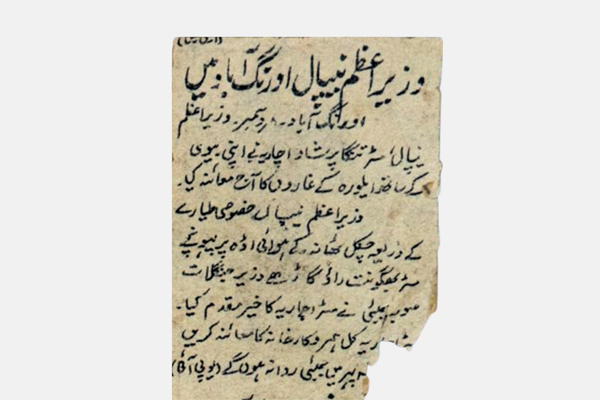 وزیراعظم نیپال اورنگ آباد میں
اورنگ آباد۔ دسمبر۔ وزیراعظم
نیپال مسٹر ٹنکا پرشاد اچاریہ نے اپنی بیوی
کے ساتھ ایلورہ کے غاروں کا آج معائنہ کیا۔
وزیراعظم نیپال خصوصی طیارے
کے ذریعہ چکل ٹھانہ کے ہوائی اڈہ پر پہونچے
مسٹر بھگونت راؤ گاڑھے وزیر جنگلات
صوبہ بمبئی نے مسٹر اچاریہ کا خیر مقدم کیا۔
کل ہمرو کارخانہ کا معائنہ کریں
میں بمبئی روانہ ہوں گے (یو پی آئی)